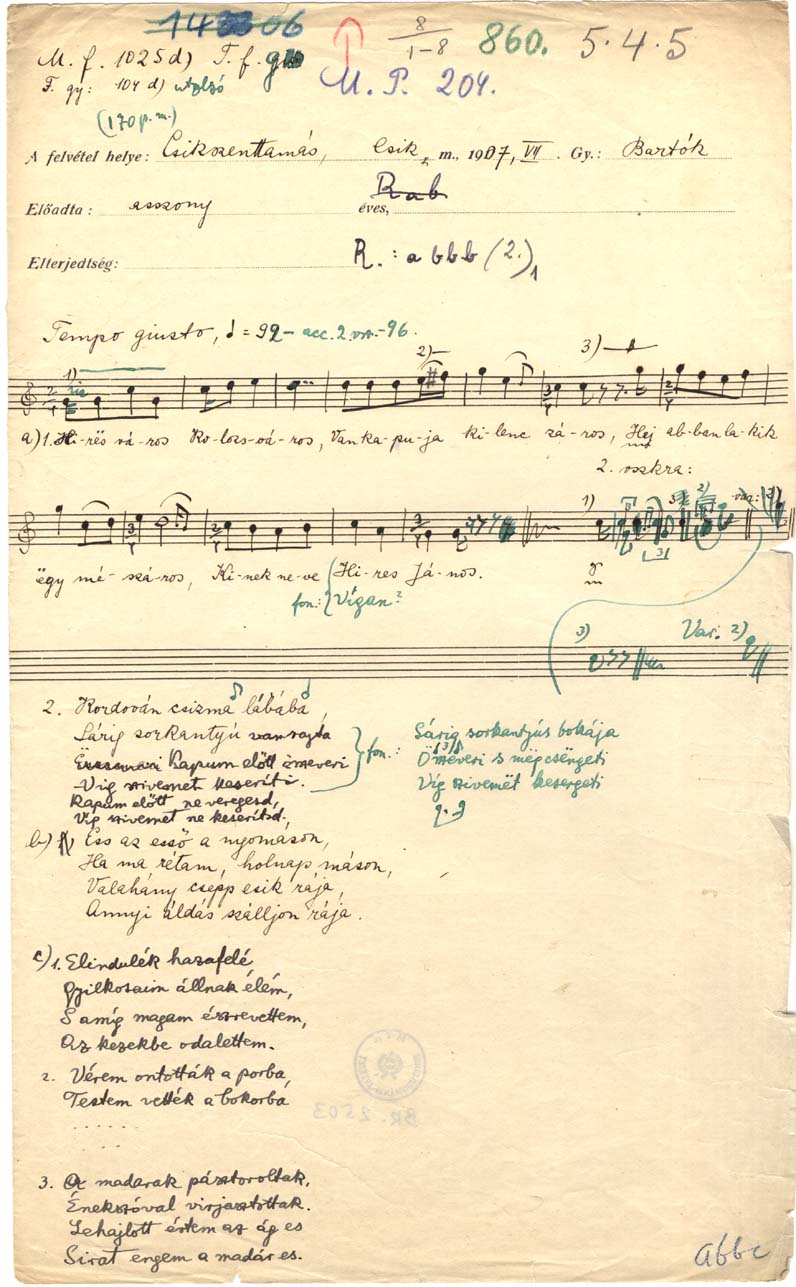 143306
8
1-8
860.
5.4.5
M. f. 1025 d) T. f.
F. gy: 104 d) utolsó
M. P. 204.
(170 p. m.)
A felvétel helye: Csikszenttamás, Csik m., 1907, VII. Gy.: Bartók
Rab
Előadta: asszony éves,
Elterjedtség: R.: a b b b (2.)1
Tempo giusto, ♩ = 92 – acc. 2. vsz. – 96.
1) 2) 3)
a) 1. Hi-rës vá-ros Ko-lozs-vá-ros, Van ka-pu-ja ki-lenc zá-ros, Hej ab-ban la-kik
2. vszkra:
1) 3) 2) var: 2)
ëgy mé-szá-ros, Ki-nek ne-ve Hi-res Já-nos.
fon.: Vígan?
3) Var. 2)
2. Kordován csizma lábába,
Sárig sorkantyú van rajta
Kapum előtt ëszveveri
Vig szivemet keseríti.
Kapum előtt ne veregesd,
Vig szivemet ne keserítsd,
fon.: Sárig sorkantyús bokája
Öszveveri s mëgcsëngeti
Víg szivemët kesergeti
b) Ess az esső a nyomáson,
Ha ma rétam, holnap máson,
Valahány csepp esik rája,
Annyi áldás szálljon rája.
c) 1. Elindulék hazafelé
Gyilkosaim állnak élém,
S amíg magam észrevettem,
Az kezekbe odalettem.
2. Vérem ontották a porba,
Testem vették a bokorba
. . . . . .
. . .
BR. 2503
3. A madarak pásztoroltak,
Énekszóval virjasztottak.
Lehajlott értem az ág es
Sirat engem a madár es.
abbc